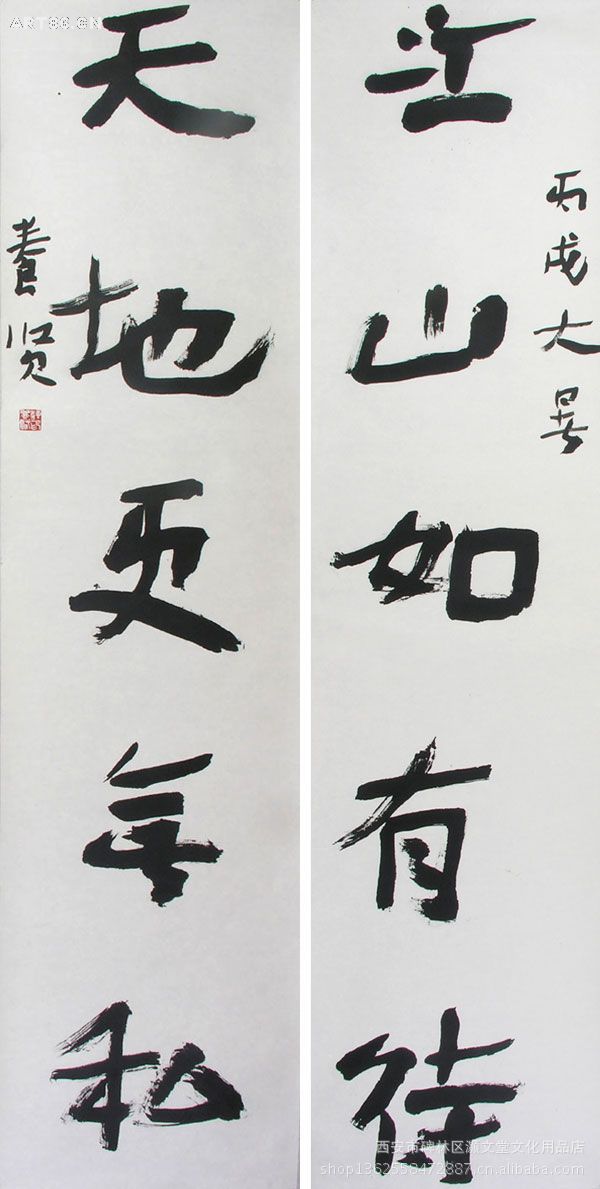 江山如有待
丙戌大暑
天地更無私
贤
ART86.CN
西安市碑林区灏文堂文化用品店
shop1362558472887.cn.alibaba.com